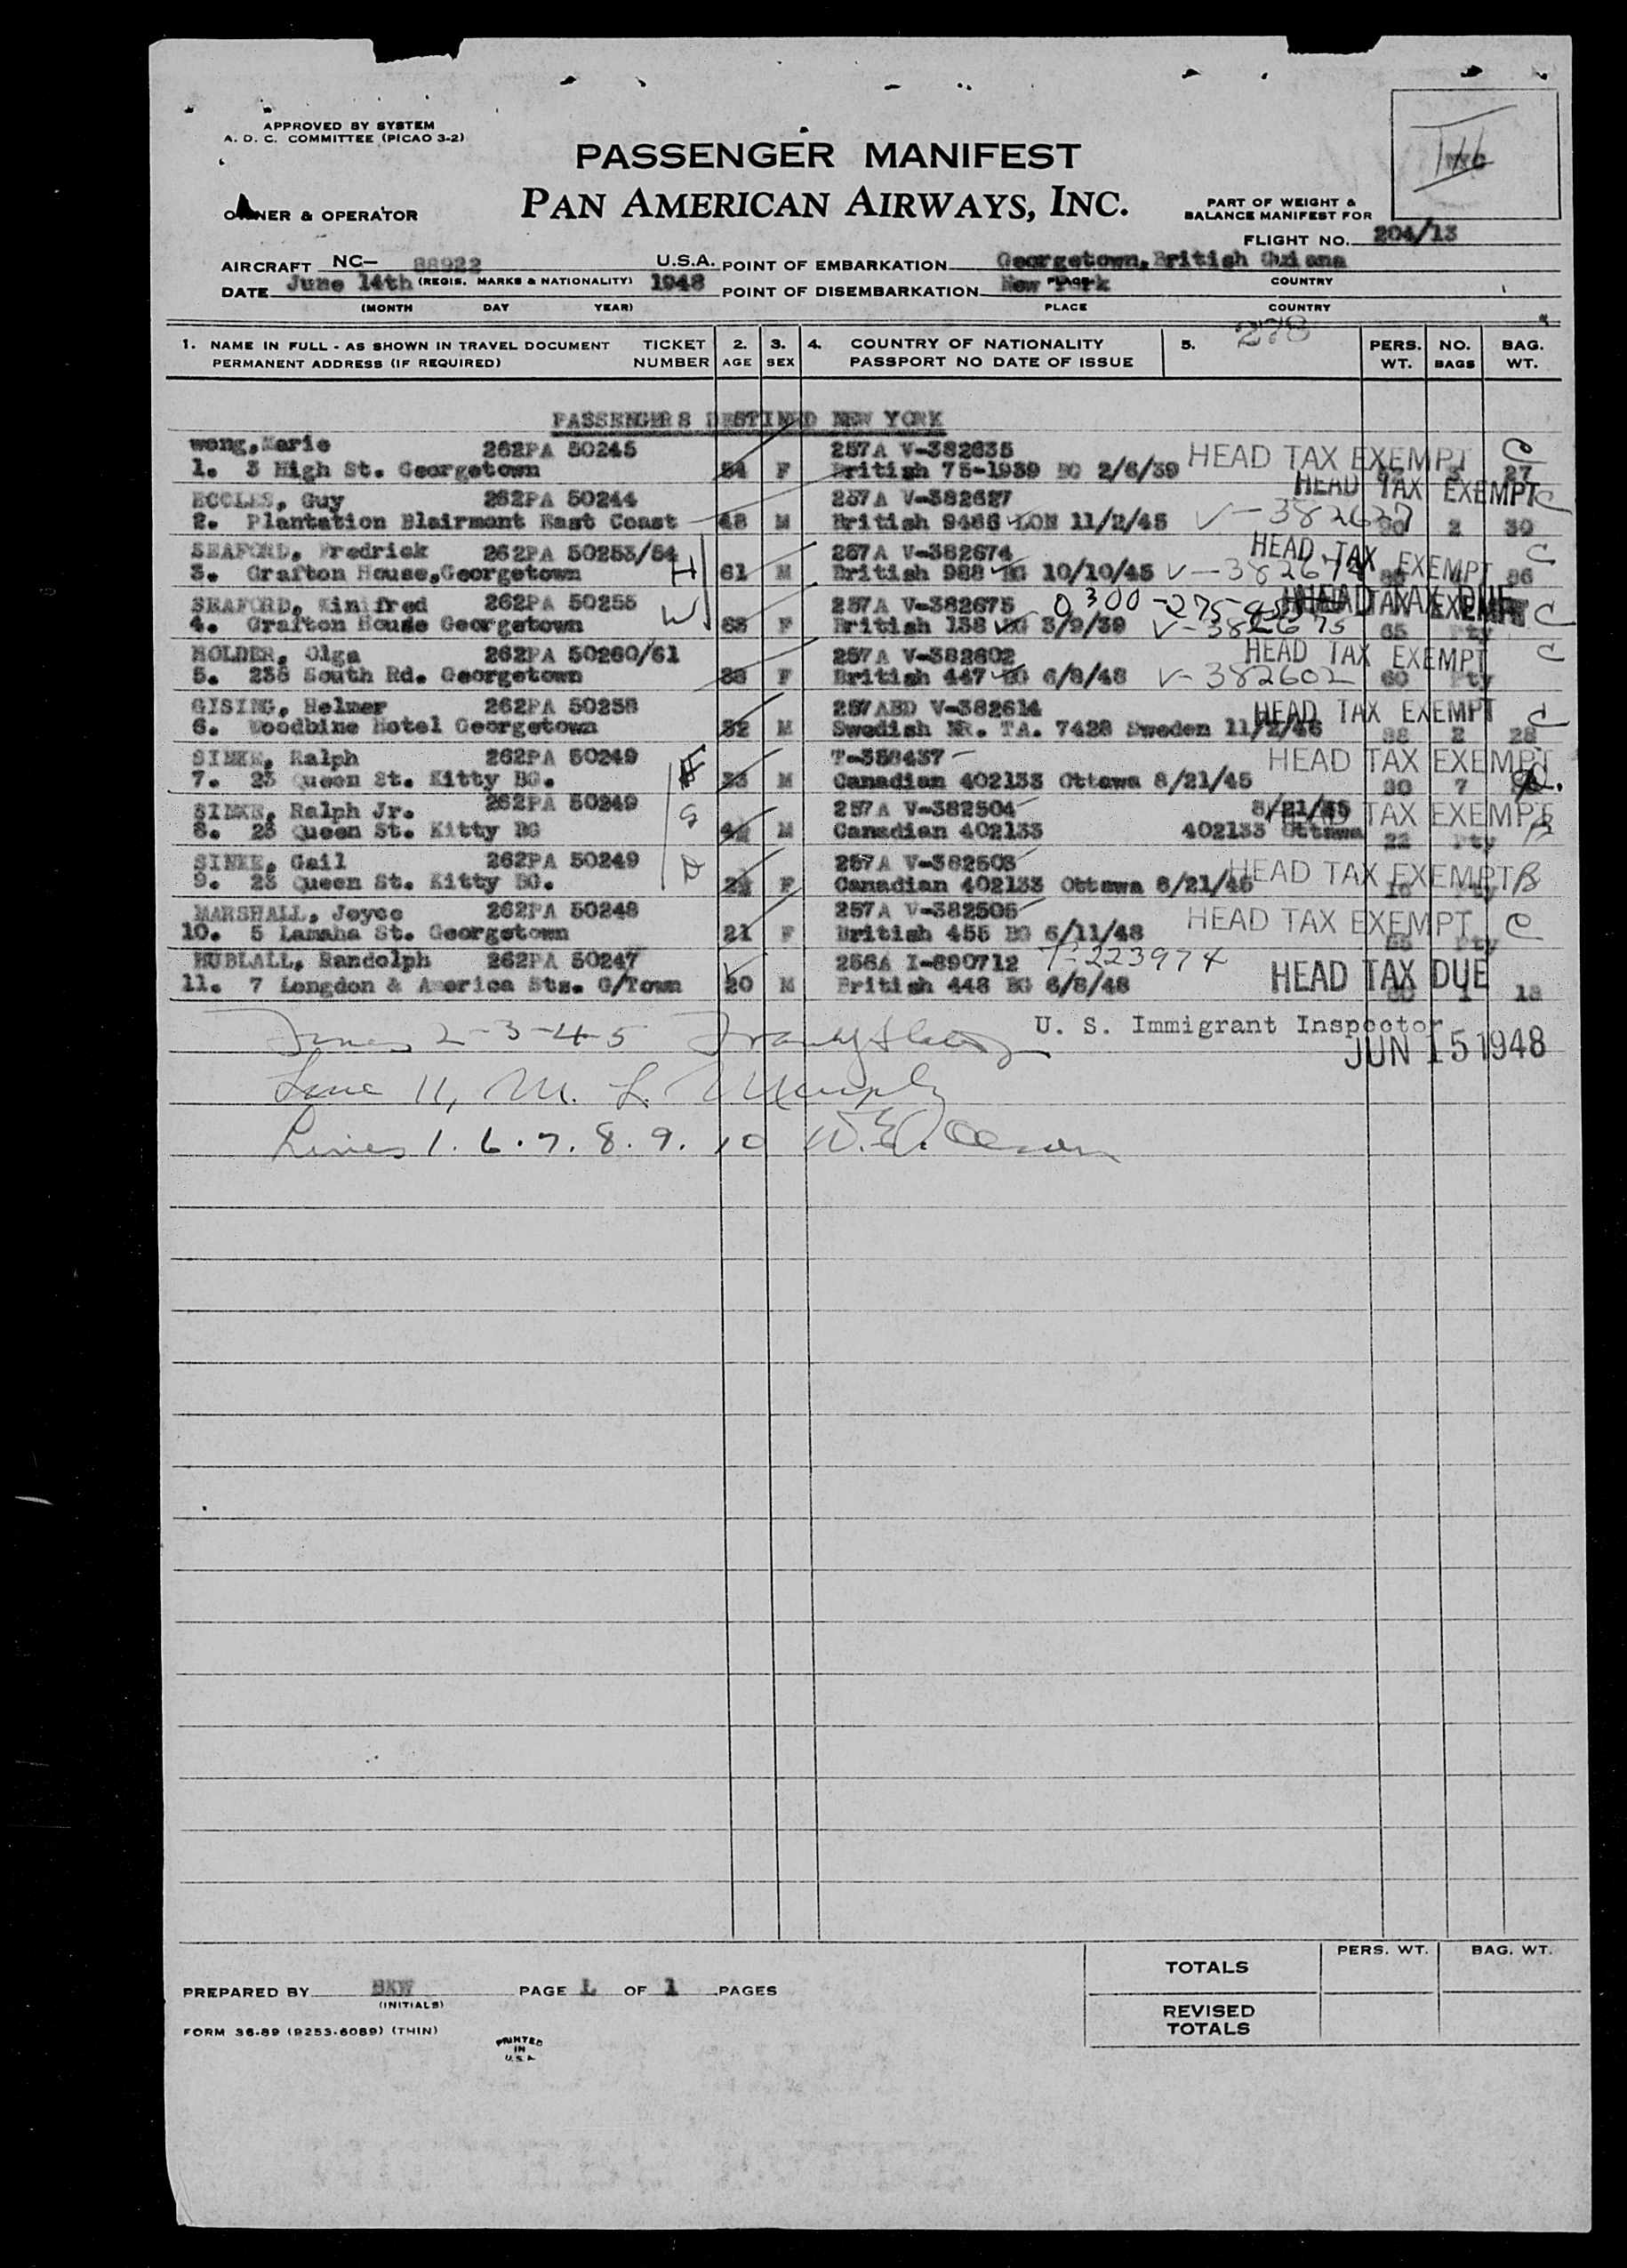 APPROVED BY SYSTEM
A. D. C. COMMITTEE (PICAO 3-2)
PASSENGER MANIFEST
PAN AMERICAN AIRWAYS, INC.
OWNER & OPERATOR
PART OF WEIGHT &
BALANCE MANIFEST FOR
FLIGHT NO. 204/13
AIRCRAFT NC- 88922 U.S.A. POINT OF EMBARKATION Georgetown, British Guiana
DATE June 14th (REGIS. MARKS & NATIONALITY) 1948 POINT OF DISEMBARKATION New York PLACE COUNTRY
(MONTH DAY YEAR) PLACE COUNTRY
278
1. NAME IN FULL - AS SHOWN IN TRAVEL DOCUMENT TICKET 2. 3. 4. COUNTRY OF NATIONALITY 5. PERS. NO. BAG.
PERMANENT ADDRESS (IF REQUIRED) NUMBER AGE SEX PASSPORT NO DATE OF ISSUE WT. BAGS WT.
PASSENGERS DESTINED NEW YORK
wong, Marie 262PA 50245 257A V-382635 HEAD TAX EXEMPT C
1. 3 High St. Georgetown 54 F British 75-1939 BG 2/6/39 27
ECCLES, Guy 262PA 50244 257A V-382627 HEAD TAX EXEMPT C
2. Plantation Blairmont East Coast 48 M British 9486 LON 11/2/45 V-382627 90 2 30
SEAFORD, Fredrick 262PA 50253/54 H 257A V-382674 HEAD TAX EXEMPT C
3. Grafton House, Georgetown 61 M British 988 BG 10/10/45 V-382674 86
SEAFORD, Winifred 262PA 50255 W 257A V-382675 0300-275 HEAD TAX EXEMPT C
4. Grafton House Georgetown F British 138 BG 3/9/39 V-382675 65 Pty
HOLDER, Olga 262PA 50260/61 257A V-382602 HEAD TAX EXEMPT C
5. 238 South Rd. Georgetown F British 447 BG 6/8/48 V-382602 60 Pty
GISING, Helmer 262PA 50258 257ABD V-382614 HEAD TAX EXEMPT C
6. Woodbine Hotel Georgetown 32 M Swedish NR. TA. 7428 Sweden 11/2/46 2 28
SINKE, Ralph 262PA 50249 F T-358437 HEAD TAX EXEMPT
7. 23 Queen St. Kitty BG. 33 M Canadian 402133 Ottawa 8/21/45 90 7
SINKE, Ralph Jr. 262PA 50249 S 257A V-382504 8/21/45 HEAD TAX EXEMPT B
8. 23 Queen St. Kitty BG M Canadian 402133 402133 Ottawa 22 Pty
SINKE, Gail 262PA 50249 D 257A V-382503 HEAD TAX EXEMPT B
9. 23 Queen St. Kitty BG. F Canadian 402133 Ottawa 8/21/45 Pty
MARSHALL, Joyce 262PA 50248 257A V-382505 HEAD TAX EXEMPT C
10. 5 Lamaha St. Georgetown 21 F British 455 BG 6/11/48 Pty
HUBLALL, Randolph 262PA 50247 256A I-890712 T-223974
11. 7 Longdon & America Sts. G/Town 20 M British 448 BG 6/8/48 HEAD TAX DUE 1 18
U. S. Immigrant Inspector
Lines 2-3-4-5
JUN 15 1948
Line 11, M. L. Murphy
Lines 1. 6. 7. 8. 9. 10
TOTALS PERS. WT. BAG. WT.
PREPARED BY BKW PAGE 1 OF 1 PAGES
(INITIALS)
REVISED
TOTALS
FORM 36-89 (9253-6089) (THIN)
PRINTED
IN
U.S.A.